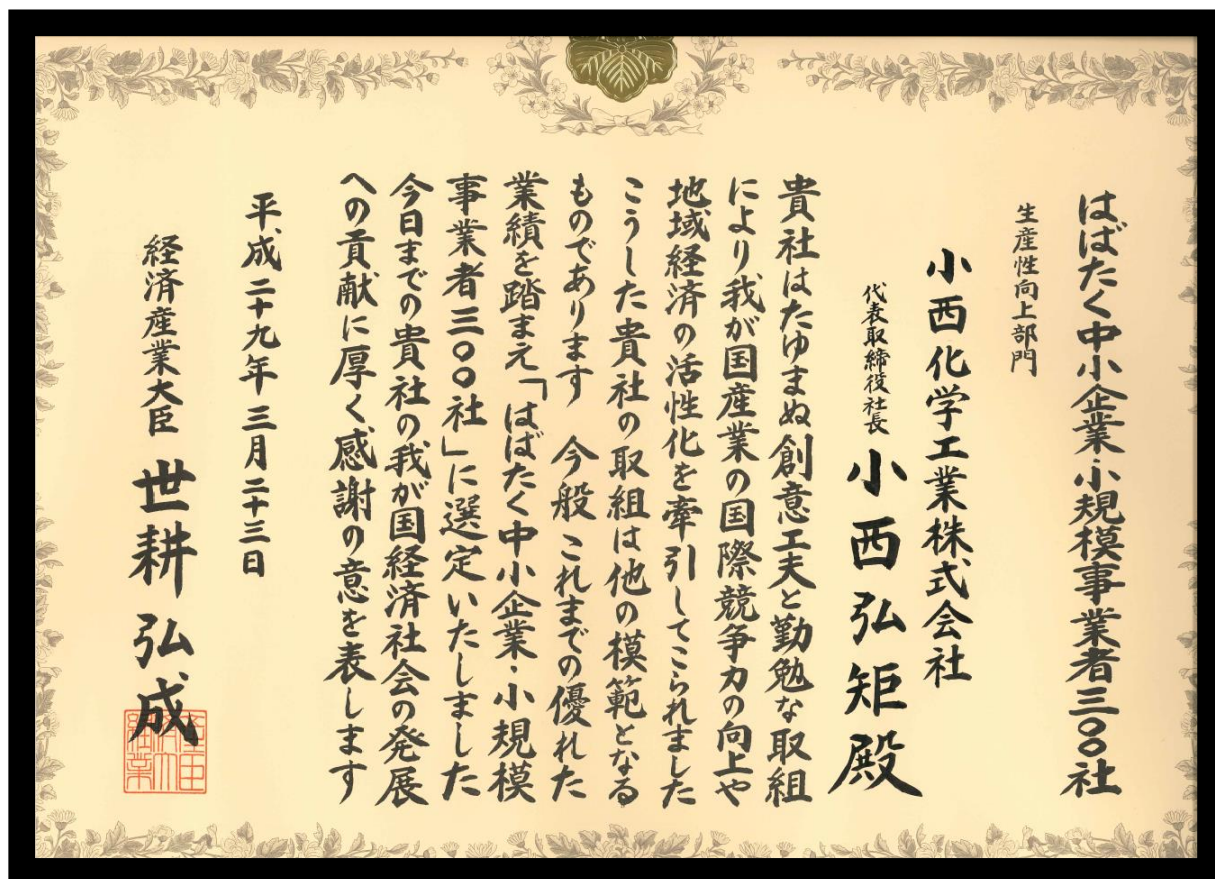 はばたく中小企業・小規模事業者三〇〇社
生産性向上部門
小西化学工業株式会社
代表取締役社長 小西弘矩殿
貴社はたゆまぬ創意工夫と勤勉な取組
により我が国産業の国際競争力の向上や
地域経済の活性化を牽引してこられました
こうした貴社の取組は他の模範となる
ものであります 今般 これまでの優れた
業績を踏まえ「はばたく中小企業・小規模
事業者三〇〇社」に選定いたしました
今日までの貴社の我が国経済社会の発展
への貢献に厚く感謝の意を表します
平成二十九年三月二十三日
経済産業大臣 世耕弘成